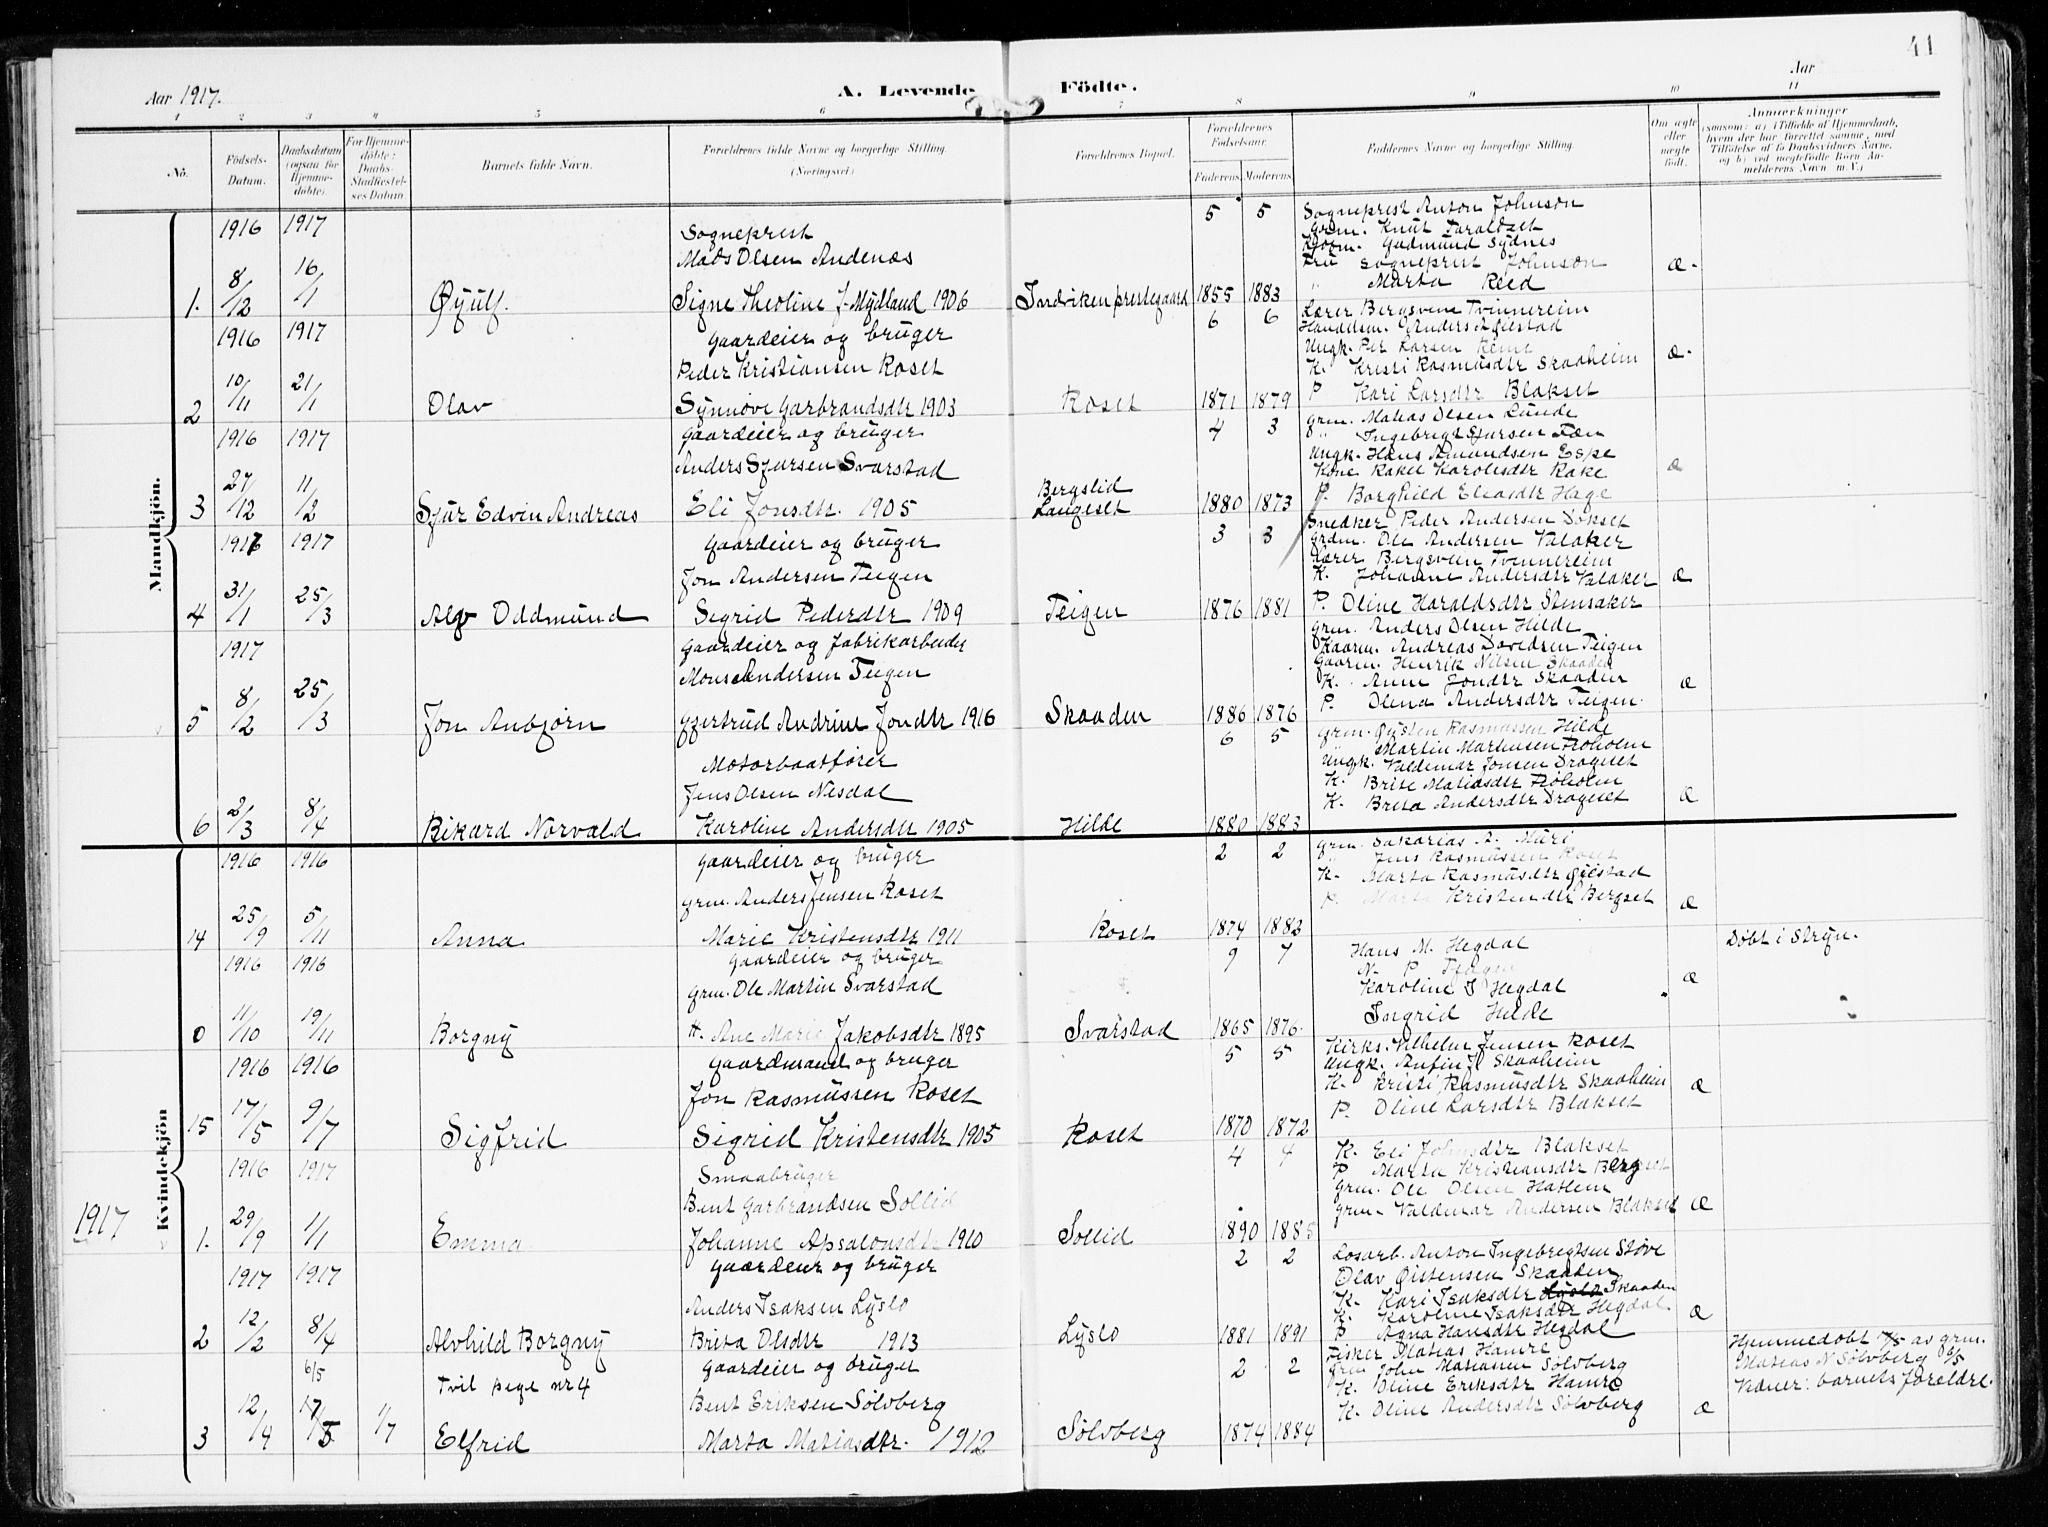 41
Aar 1917. A. Levende Födte. Aar
1 2 3 4 5 6 7 8 9 10 11
No. Födsels-Datum. Daabsdatum (ogsaa for Hjemmedöbte). For Hjemmedöbte: Daabs-Stadfæstelses Datum. Barnets fulde Navn. Forældrenes fulde Navne og borgerlige Stilling. (Næringsvei.) Forældrenes Bopæl. Forældrenes Födselsaar. Faderens Moderens Faddernes Navne og borgerlige Stilling. Om ægte eller uægte födt. Anmærkninger (saasom: a) i Tilfælde af Hjemmedaab, hvem der har forrettet samme, med Tilföielse af to Daabsvidners Navne, og b) ved uægtefödte Börn Anmelderens Navn m. V.)
Mandkjön.
1916 1917 Sogneprest 5 5 Sogneprest Anton Johnson
Grdm. Knut Taraldset
Mads Olsen Andenæs Kjøpm. Gudmund Sydnes
8/12 16/1 Fru Sogneprest Johnson æ.
1. Øyulf. Signe Theoline J. Mydland 1906 Indviken prestegaard 1855 1883 " Marta Reed
1916 1917 Gaardeier og bruger 6 6 Lærer Bergsvein Tvinnereim
Handelsm. Anders Øiestad
Peder Kristiansen Roset Ungk. Per Larsen Reme æ.
10/11 21/1 K. Kristi Rasmusdtr Skaaheim
2 Olav Synnøve Garbrandsdtr 1903 Roset 1871 1879 P Kari Larsdtr Blakset
1916 1917 Gaardeier og bruger 4 3 grm. Matias Olsen Lunde
" Ingebrigt Sjursen Tæn
Anders Sjursen Svarstad Ungk. Hans Amundsen Espe
27/12 11/2 Bergslid Kone Rakel Karolusdtr Rake æ
3 Sjur Edvin Andreas Eli Jonsdtr. 1905 Langeset 1880 1873 P. Borghild Eliasdtr Hage
1917 1917 Gaardeier og bruger 3 3 Snedker Peder Andersen Dokset
Grdm. Ole Andersen Valaker
Jon Andersen Teigen Lærer Bergsvein Tvinnereim
31/1 25/3 K. Johanne Andersdtr Valaker æ
4 Alv Oddmund Sigrid Pedersdtr 1909 Teigen 1876 1881 P. Oline Haraldsdtr Stensaker
1917 Gaardeier og fabrikarbeider grm. Anders Olsen Hilde
Kaarm. Andreas Davidsen Teigen
Mons Andersen Teigen Gaarm. Henrik Nilsen Skaaden
8/2 25/3 K. Anne Jondtr Skaaden æ
5 Jon Anbjørn Gjertrud Andrine Jondtr 1916 Skaaden 1886 1876 P. Olena Andersdtr Teigen.
6 5 grm. Øisten Rasmussen Hilde
Motorbaatfører " Martin Martinusen Frøholm
Jens Olsen Nesdal Ungk. Valdemar Jonsen Drageset
2/3 8/4 K. Brite Matiasdtr Frøholm
6 Rikard Norvald Karoline Andersdtr 1905 Hilde 1880 1883 K. Brita Andersdtr Drageset æ
Kvindekjön
1916 1916 Gaardeier og bruger 2 2 grm. Sakarias A. Muri
" Jens Rasmussen Roset
grm. Anders Jensen Roset K. Marta Rasmusdtr Øiestad
25/9 5/11 P. Kristendtr Bergset æ
14 Anna Marie Kristensdtr 1911 Roset 1874 1882 Døbt i Stryn.
1916 1916 Gaardeier og bruger 9 7 Hans M. Hegdal
N. P
grm. Ole Martin Svarstad Karoline J Hegdal æ
11/10 19/11 Ingrid Hilde
0 Borgny H. Ane Marie Jakobsdtr 1895 Svarstad 1865 1876
1916 1916 Gaardmand og bruger 5 5 Kirks. Vilhelm Jensen Roset
Ungk. Anfin J. Skaaheim
Jon Rasmussen Roset K. Kristi Rasmusdtr Skaaheim æ
17/5 9/7 P. Oline Larsdtr Blakset
15 Sigfrid Sigrid Kristensdtr 1905 Roset 1870 1872
1916 1917 Smaabruger 4 4 K. Eli Johnsdtr Blakset
P Marta Kristiansdtr Bergset
Bent Garbrandsen Sollid grm. Ole Olsen Hatlem
1917 29/9 1/1 grm. Valdemar Andersen Blakset æ
1. Emma Johanne Apsalonsdtr 1910 Sollid 1890 1885
1917 1917 Gaardeier og bruger 2 2 Løsarb. Anton Ingebregtsen Støve
Olav Øistensen Skaaden
Anders Isaksen Lyslo K. Kari Isaksdtr Lyslo Skaaden
12/2 8/4 K. Karoline Isaksdtr Hegdal æ
2 Alvhild Borgny Brita Olsdtr 1913 Lyslo 1881 1891 P Agna Hansdtr Hegdal
6/5 Gaardeier og bruger 2 2 Fisker Matias Hamre Hjemmedøbt 6/5 av grm.
Tvil pige nr 4 grm John Matiasen Sølvberg Matias N Sølvberg 6/5
Bent Eriksen Sølvberg K. Oline Eriksdtr Hamre Vidner: barnets foreldre.
12/4 17/5 1/7 K. Oline Andersdtr Sølvberg æ
3 Elfrid Marta Matiasdtr. 1912 Sølvberg 1874 1884